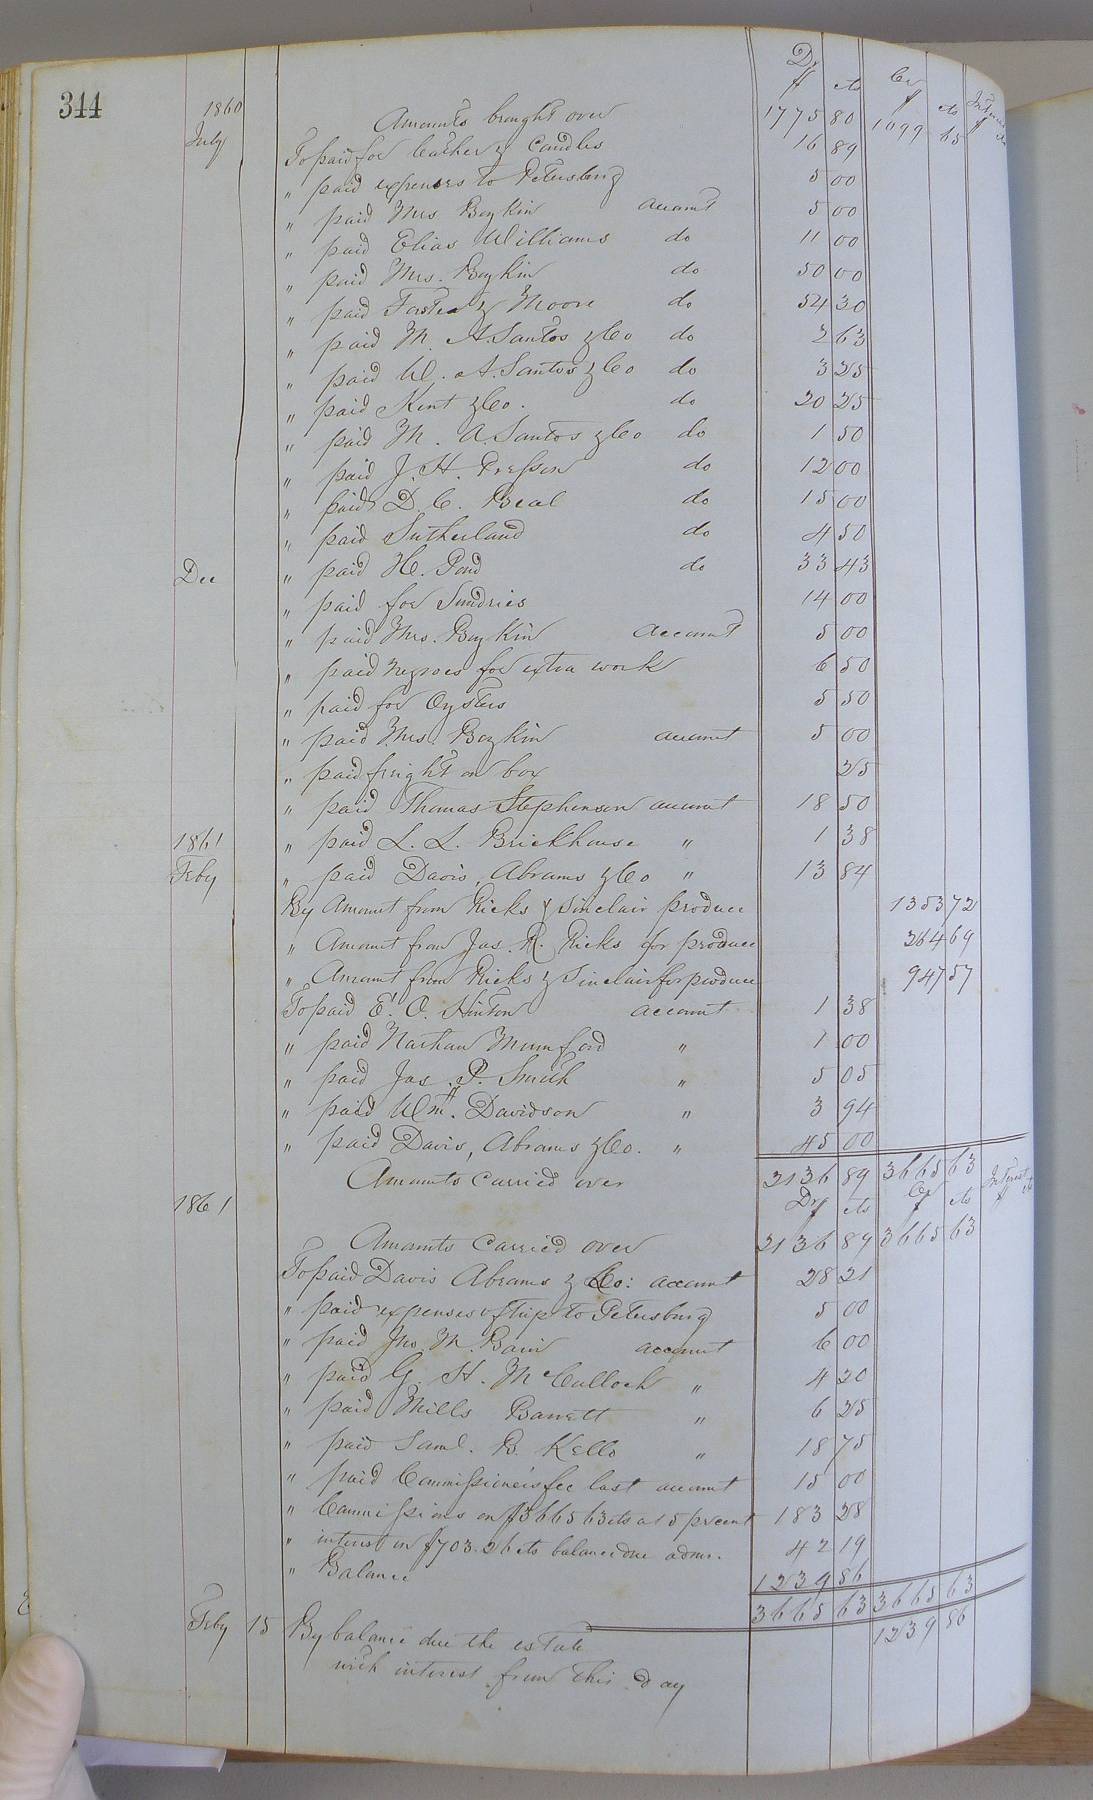 344
Dr Cr Interest
1860 $ cts $ cts $ cts
Amounts brought over 1775 80 1099 65
July To paid for leather & Candles 16 89
" paid expenses to Petersburg 5 00
" paid Mrs Boykin account 5 00
" paid Elias Williams do 11 00
" paid Mrs. Boykin do 50 00
" paid Foster & Moore do 54 30
" paid M. A. Santos & Co do 2 63
" paid W. A. Santos & Co do 3 25
" paid Kent & Co. do 20 25
" paid M. A. Santos & Co do 1 50
" paid J. H. Presson do 12 00
" paid D. C. Beal do 15 00
" paid Sutherland do 4 50
Dec " paid H. Pond do 33 43
" paid for Sundries 14 00
" paid Mrs. Boykin account 5 00
" paid negroes for extra work 6 50
" paid for Oysters 5 50
" paid Mrs. Boykin account 5 00
" paid freight on box 25
" paid Thomas Stephenson account 18 50
1861 " paid L. L. Brickhouse " 1 38
Feby " paid Davis, Abrams & Co " 13 84
By Amount from Ricks & Sinclair produce 1353 72
" Amount from Jas. R. Ricks for produce 264 69
" Amount from Ricks & Sinclair for produce 947 57
To paid E. C. Hinton account 1 38
" paid Nathan Mumford " 1 00
" paid Jas. P. Smith " 5 05
" paid Wm. H. Davidson " 3 94
" paid Davis, Abrams & Co. " 45 00
Amounts carried over 2136 89 3665 63
1861 Dr $ cts Cr $ cts Interest $ cts
Amounts carried over 2136 89 3665 63
To paid Davis Abrams & Co: account 28 21
" paid expenses of trip to Petersburg 5 00
" paid Jno. M. Bain account 6 00
" paid G. H. McCulloch " 4 20
" paid Mills Barrett " 6 25
" paid Saml. B. Kello " 18 75
" paid Commissioners fee last account 15 00
" Commissions on $3665 63 cts at 5 prcent 183 28
" interest on $703.26 cts balance due admr. 42 19
" Balance 1239 86
3665 63 3665 63
Feby 15 By balance due the estate 1239 86
with interest from this day